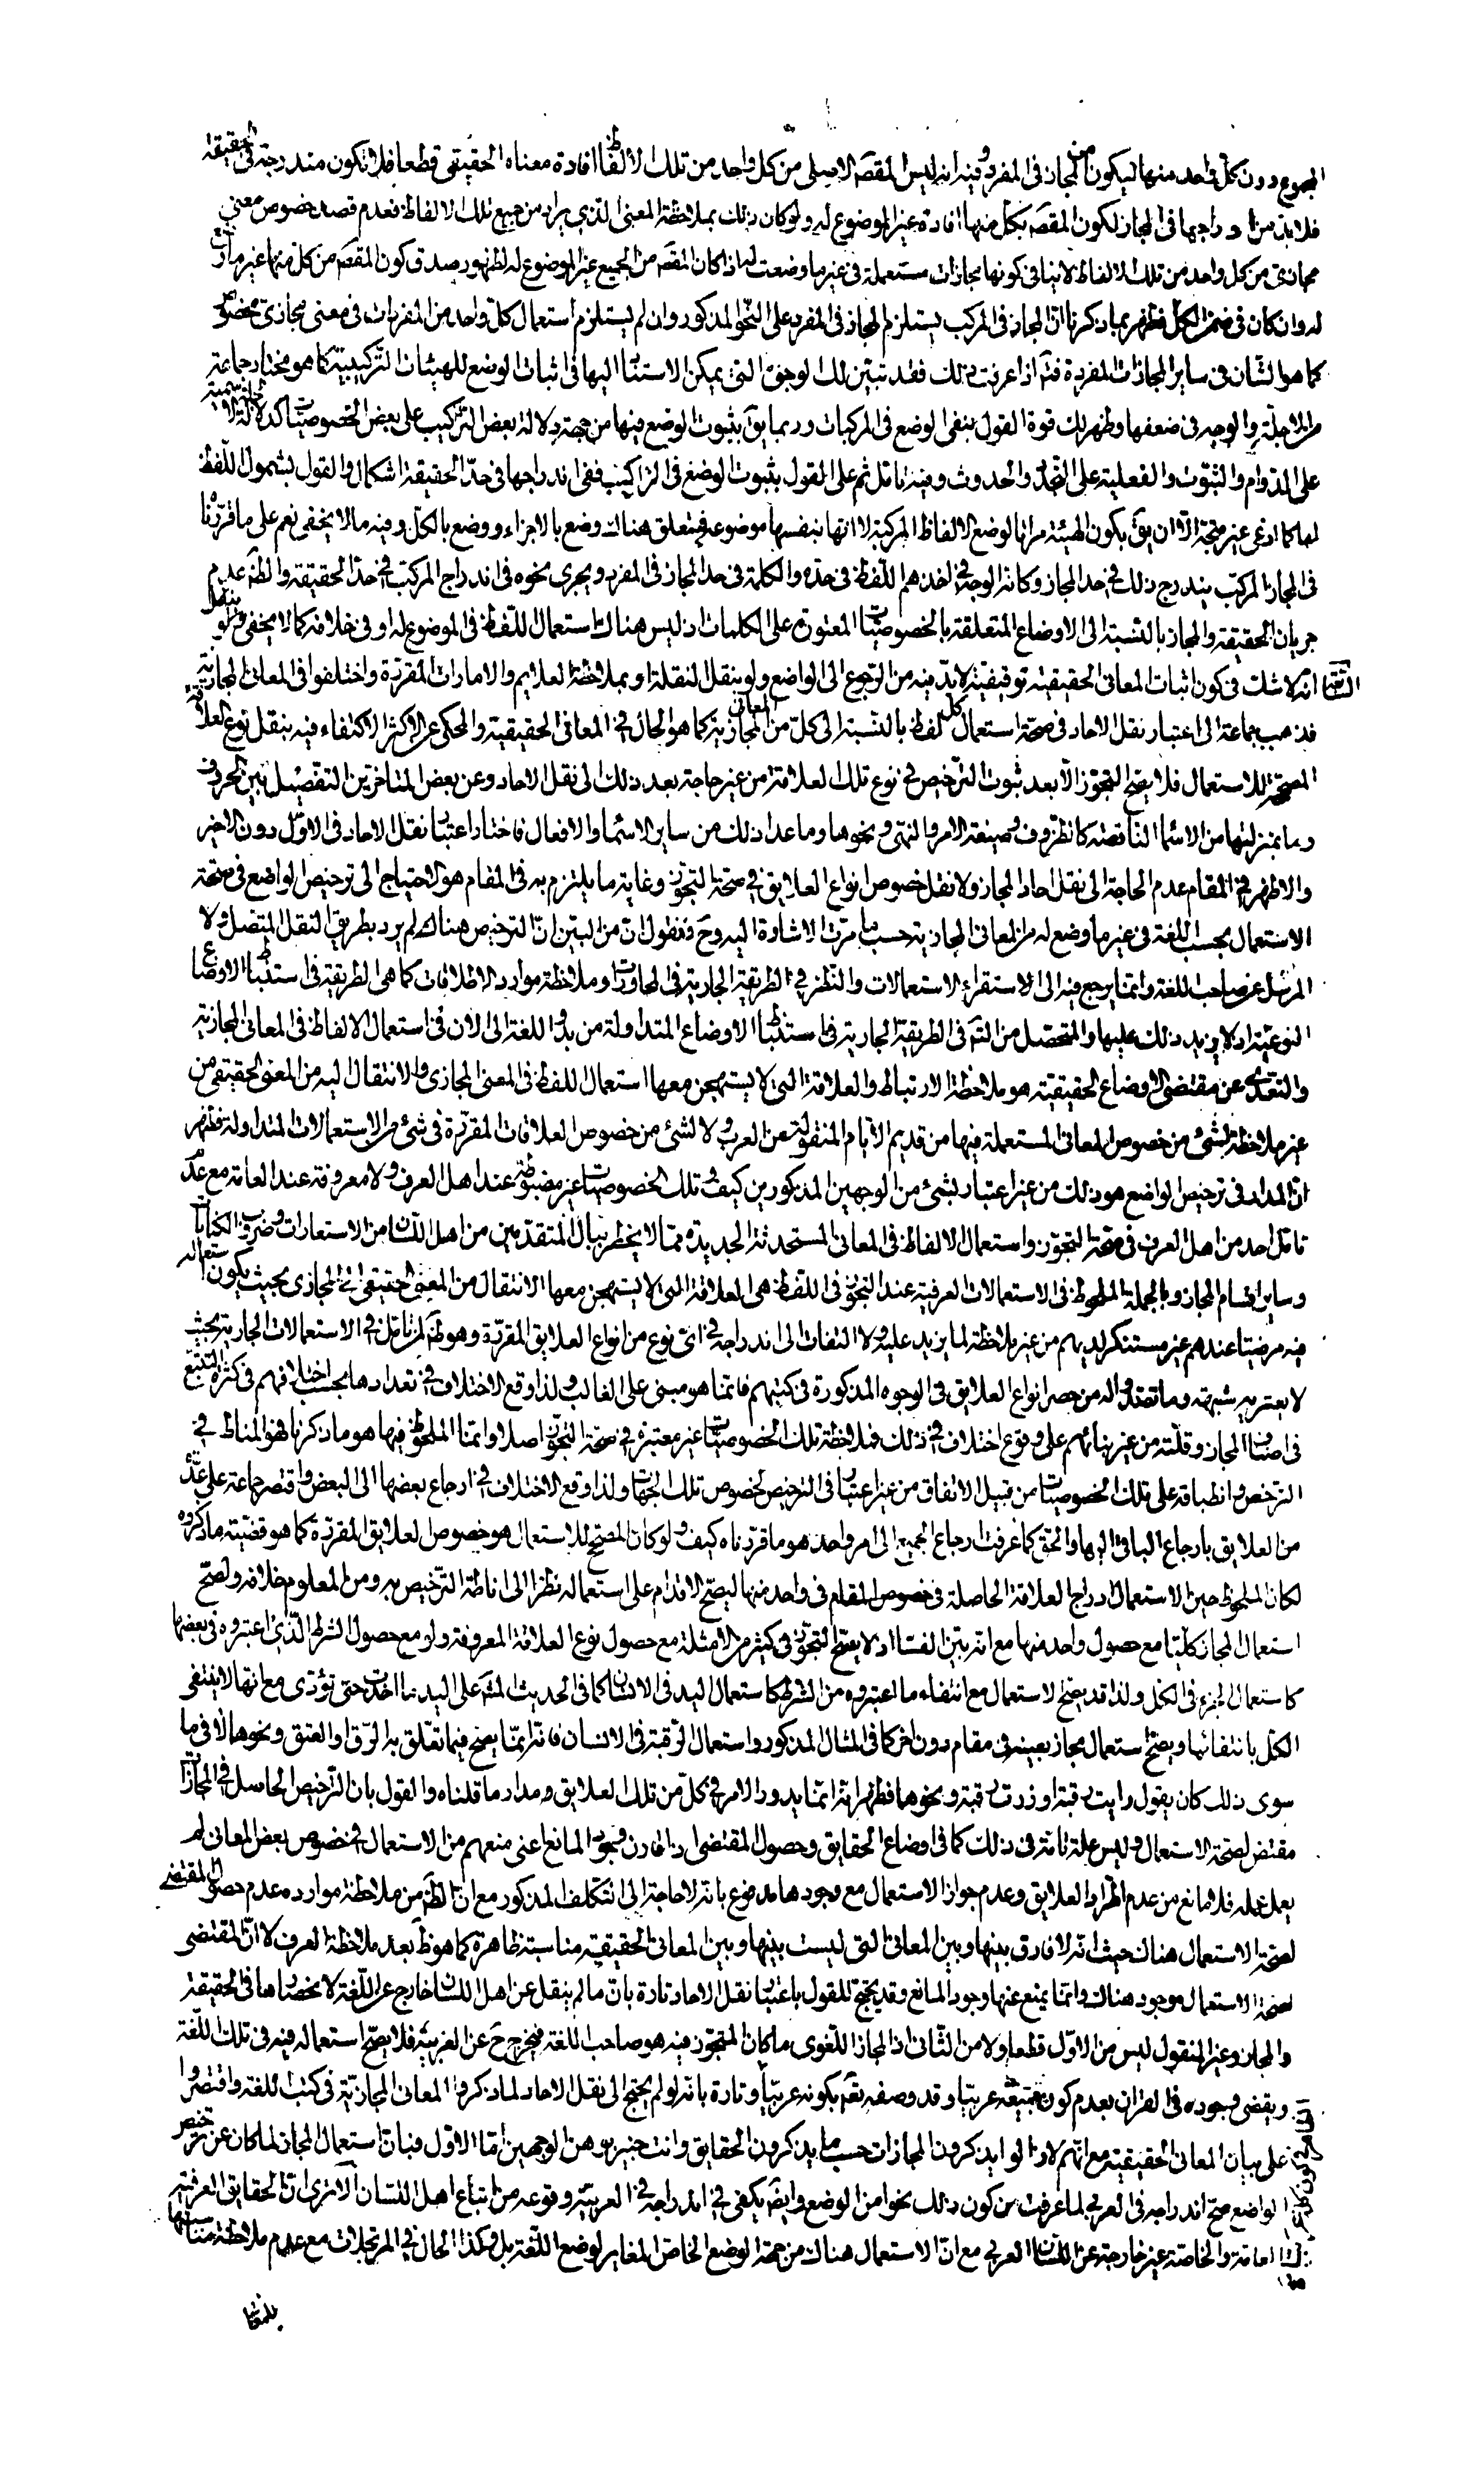 المجموع دون كل واحد منها ليكون من المجاز في المفرد وفيه انه ليس المقصَ الاصلى من كل واحد من تلك الالفاظ افادة معناه الحقيقى قطعا فلا تكون مندرجة فى الحقيقة
فلابد من اندراجها فى المجاز لكون المقصَ بكل منها افادة غير الموضوع له ولو كان ذلك بملاحظة المعنى الذى يراد من جميع تلك الالفاظ فعدم قصد خصوص معنى
مجازى من كل واحد من تلك الالفاظ لا ينافى كونها مجازات مستعملة فى غير ما وضعت له اذا كان المقصَ من الجميع غير الموضوع له لظهور صدق كون المقصَ من كل منها غير ما وضع
له وان كان فى ضمن الكل فظهر بما ذكرنا ان المجاز فى المركب يستلزم المجاز فى المفرد على النحو المذكور وان لم يستلزم استعمال كل واحد من المفردات فى معنى مجازى مخصوص
كما هو الشأن فى ساير المجازات المفردة ثم اذا عرفت ذلك فقد تبين لك الوجوه التى يمكن الاستناد اليها فى اثبات الوضع للهيئات التركيبية كما هو مختار جماعة
من الاجلة والوجه فى ضعفها وظهر لك قوة القول بنفى الوضع فى المركبات وربما يقَ بثبوت الوضع فيها من جهة دلالة بعض التراكيب على بعض الخصوصيات كدلالة الجملة الاسمية
على الدوام والثبوت والفعلية على التجدد والحدوث وفيه تامل ثم على القول بثبوت الوضع فى التراكيب ففى اندراجها فى حد الحقيقة اشكال والقول بشمول اللفظ
لها كما ادعى غير متجه الا ان يقَ بكون الهيئة مراتا لوضع الالفاظ المركبة لا انها بنفسها موضوعة فيتعلق هناك وضع بالاجزاء ووضع بالكل وفيه ما لا يخفى نعم على ما قررنا
فى المجاز المركب يندرج ذلك فى حد المجاز وكان الوجه فى اخذهم اللفظ فى حده والكلمة فى حد المجاز فى المفرد ويجرى نحوه فى اندراج المركب فى حد الحقيقة والظَ عدم
جريان الحقيقة والمجاز بالنسبة الى الاوضاع المتعلقة بالخصوصيات المعتورة على الكلمات اذ ليس هناك استعمال للفظ فى الموضوع له او فى خلافه كما لا يخفى
انه لا شك فى كون اثبات المعانى الحقيقية توقيفية لابد فيه من الرجوع الى الواضع ولو بنقل النقلة او بملاحظة العلايم والامارات المقررة واختلفوا فى المعانى المجازية
فذهب جماعة الى اعتبار نقل الاحاد فى صحة استعمال كل لفظ بالنسبة الى كل من المعانى المجازية كما هو الحال فى المعانى الحقيقية والمحكى عن الاكثر الاكتفاء فيه بنقل نوع العلاقة
المصححة للاستعمال فلا يصح التجوز الا بعد ثبوت الترخيص فى نوع تلك العلاقة من غير حاجة بعد ذلك الى نقل الاحاد وعن بعض المتاخرين التفصيل بين الحروف
وما بمنزلتها من الاسماء الناقصة كالظروف وصيغة الامر والنهى ونحوها وما عدا ذلك من ساير الاسماء والافعال فاختار اعتبار نقل الاحاد فى الاول دون الاخير
والاظهر فى المقام عدم الحاجة الى نقل احاد المجاز ولا نقل خصوص انواع العلايق فى صحة التجوز وغاية ما يلتزم به فى المقام هو الاحتياج الى ترخيص الواضع فى صحة
الاستعمال بحسب اللغة فى غير ما وضع له من المعانى المجازية حسب ما مرت الاشارة اليه وحَ فنقول ان من البين ان الترخيص هناك لم يرد بطريق النقل المتصل ولا
المرسل عن صاحب اللغة وانما يرجع فيه الى الاستقراء الاستعمالات والنظر فى الطريقة الجارية فى المحاورات وملاحظة موارد الاطلاقات كما هى الطريقة فى استنباط الاوضاع
النوعية اذ لا يزيد ذلك عليها والمتحصل من التم فى الطريقة الجارية فى استنباط الاوضاع المتداولة من بدو اللغة الى الآن فى استعمال الالفاظ فى المعانى المجازية
والتعدى عن مقتضى الاوضاع الحقيقية هو ملاحظة الارتباط والعلاقة التى لا يستهجن معها استعمال اللفظ فى المعنى المجازى والانتقال اليه من المعنى الحقيقى من
غير ملاحظة لشئ من خصوص المعانى المستعملة فيها من قديم الايام المنقولة عن العرب ولا لشئ من خصوص العلاقات المقررة فى شئ من الاستعمالات المتداولة فظهر
ان المدار فى ترخيص الواضع هو ذلك من غير اعتبار لشئ من الوجهين المذكورين كيف وتلك الخصوصيات غير مضبوطة عند اهل العرف ولا معروفة عند العامة مع عدم
تامل احد من اهل العرف فى صحة التجوز واستعمال الالفاظ فى المعانى المستحدثة الجديدة مما لا يخطر ببال المتقدمين من اهل اللسان من الاستعارات وضروب الكنايات
وساير اقسام المجاز وبالجملة الملحوظ فى الاستعمالات العرفية عند التجوز فى اللفظ هى العلاقة التى لا يستهجن معها الانتقال من المعنى الحقيقى الى المجازى بحيث يكون استعماله
فيه مرضيا عندهم غير مستنكر لديهم من غير ملاحظة لما يزيد عليه ولا التفات الى اندراجه فى اى نوع من انواع العلايق المقررة وهو ظَ لمن تامل فى الاستعمالات الجارية بحيث
لا يعتريه شبهة وما تصدوا له من حصر انواع العلايق فى الوجوه المذكورة فى كتبهم فانما هو مبنى على الغالب ولذا وقع الاختلاف فى تعدادها بحسب اختلافهم فى كثرة التتبع
فى اصناف المجاز وقلته من غير بنائهم على وقوع اختلاف فى ذلك فملاحظة تلك الخصوصيات غير معتبرة فى صحة التجوز اصلا وانما الملحوظ فيها هو ما ذكرنا فهو المناط فى
الترخص وانطباقه على تلك الخصوصيات من قبيل الاتفاق من غير اعتبار فى الترخيص لخصوص تلك الجهات ولذا وقع الاختلاف فى ارجاع بعضها الى البعض واقتصر جماعة على عدة
من العلايق بارجاع الباقى اليها والحق كما عرفت ارجاع الجميع الى امر واحد هو ما قررناه كيف ولو كان المصحح للاستعمال هو خصوص العلايق المقررة كما هو قضية ما ذكروه
لكان الملحوظ حين الاستعمال ادراج العلاقة الحاصلة فى خصوص المقام فى واحد منها ليصح الاقدام على استعماله نظرا الى اناطة الترخيص به ومن المعلوم خلافه ولصح
استعمال المجاز كليا مع حصول واحد منها مع انه بين الفساد اذ لا يصح التجوز فى كثير من الامثلة مع حصول نوع العلاقة المعروفة ولو مع حصول الشرط الذى اعتبروه فى بعضها
كاستعمال الجزء فى الكل ولذا قد يصح الاستعمال مع انتفاء ما اعتبروه من الشرط كاستعمال اليد فى الانسان كما فى الحديث المشَ على اليد ما اخذت حتى تؤدى مع انها لا ينتفى
الكل بانتفائها ويصح استعمال مجاز بعينه فى مقام دون اخر كما فى المثال المذكور واستعمال الرقبة فى الانسان فانه انما يصح فيما تعلق به الرق او العتق ونحوهما لا فى ما
سوى ذلك كان يقول رايت رقبة او زرت رقبة ونحوهما فظهر انه انما يدور الامر فى كل من تلك العلايق مدار ما قلناه والقول بان الترخيص الحاصل فى المجازات
مقتض لصحة الاستعمال وليس علة تامة فى ذلك كما فى اوضاع الحقايق وحصول المقتضى اذا قارن وجود المانع اعنى منعهم من الاستعمال فى خصوص بعض المعانى لم
يعمل عمله فلا مانع من عدم اطراد العلايق وعدم جواز الاستعمال مع وجودها مدفوع بانه لا حاجة الى التكلف المذكور مع ان الظَ من ملاحظة موارده عدم حصول المقتضى
لصحة الاستعمال هناك حيث انه لا فارق بينها وبين المعانى التى ليست بينها وبين المعانى الحقيقية مناسبة ظاهرة كما هو ظَ بعد ملاحظة العرف لا ان المقتضى
لصحة الاستعمال موجود هناك وانما يمنع عنها وجود المانع وقد يحتج للقول باعتبار نقل الاحاد تارة بان ما لم ينقل عن اهل اللسان خارج عن اللغة لانحصارها فى الحقيقة
والمجاز وغير المنقول ليس من الاول قطعا ولا من الثانى اذ المجاز اللغوى ما كان المتجوز فيه هو صاحب اللغة فيخرج حَ عن العربية فلا يصح استعماله فيه فى تلك اللغة
ويقضى وجوده فى القران بعدم كون جميعه عربيا وقد وصفه تعَ بكونه عربيا وتارة بانه لو لم يحتج الى نقل الاحاد لما ذكروا المعانى المجازية فى كتب اللغة واقتصروا
على بيان المعانى الحقيقية مع انهم لا زالوا يذكرون المجازات حسب ما يذكرون الحقايق وانت خبير بوهن الوجهين اما الاول فبان استعمال المجاز لما كان عن ترخيص
الواضع صح اندراجه فى العربى لما عرفت من كون ذلك نحوا من الوضع وايضَ يكفى فى اندراجه فى العربية وقوعه من اتباع اهل اللسان الا ترى ان الحقايق العرفية
العامة والخاصة غير خارجة عن اللسان العربى مع ان الاستعمال هناك من جهة الوضع الخاص المغاير لوضع اللغة بل وكذا الحال فى المرتجلات مع عدم ملاحظة مناسبتها